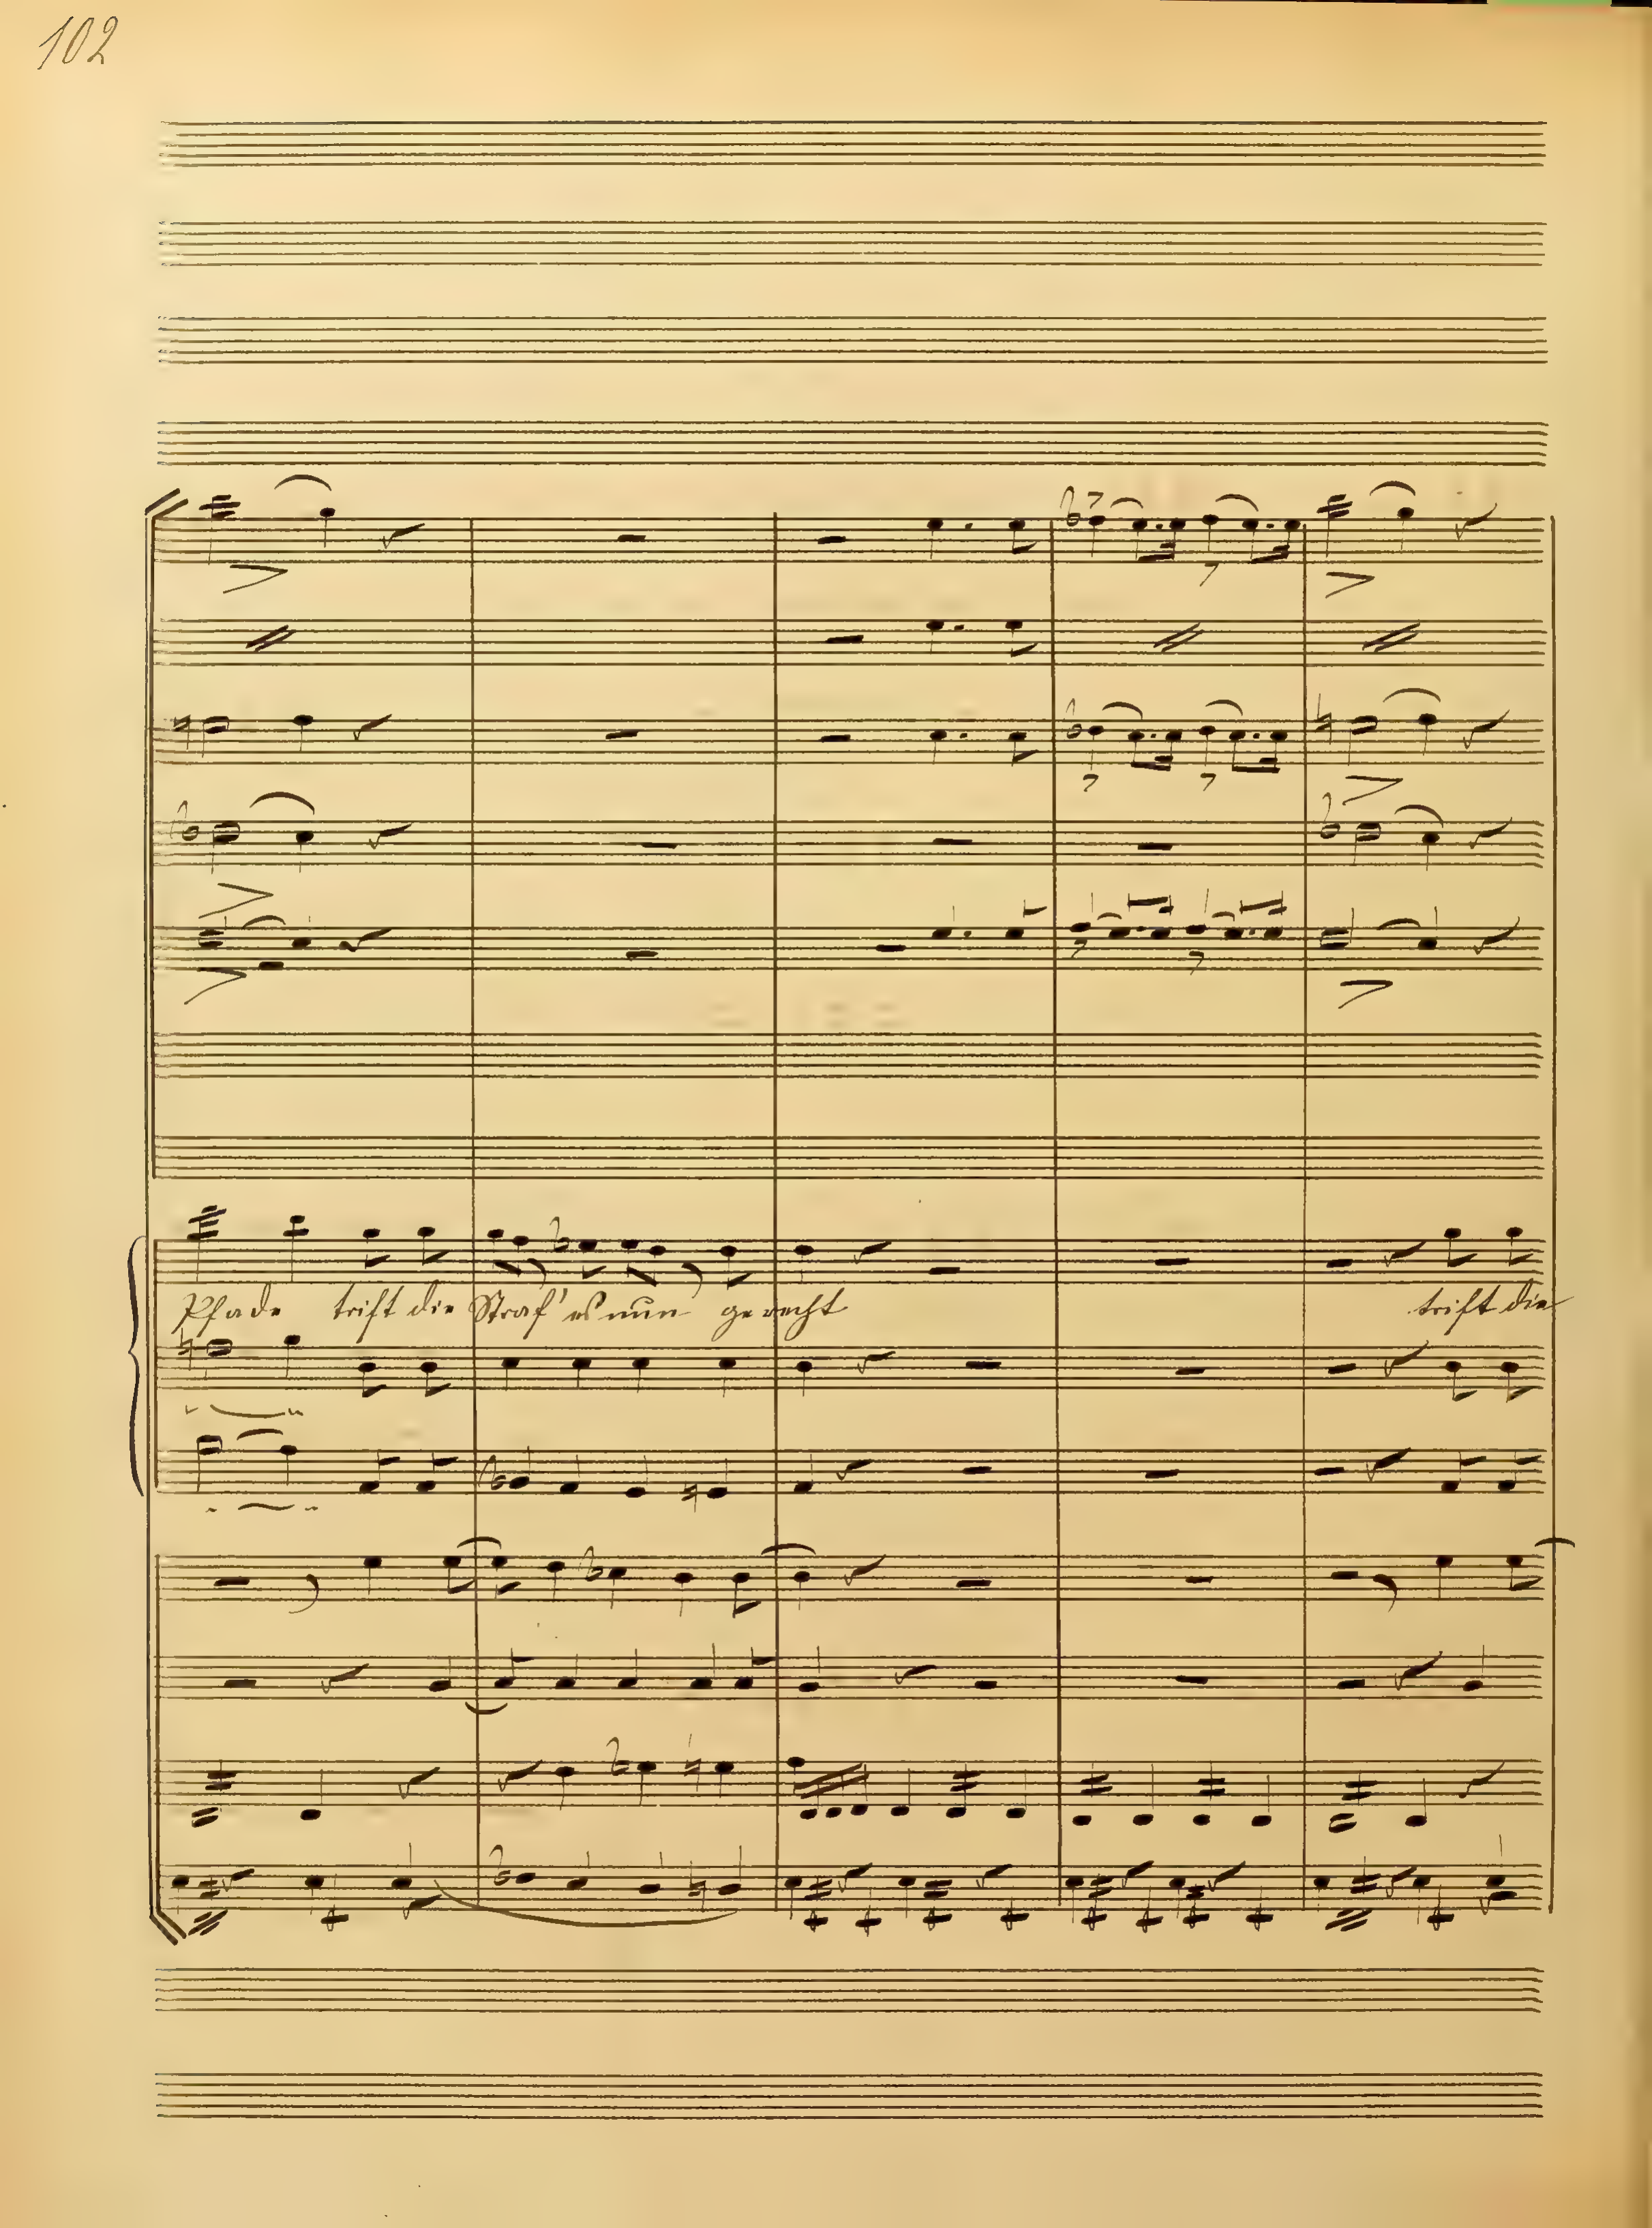 102
Pfade trift die Straf' es nun gerecht trift die